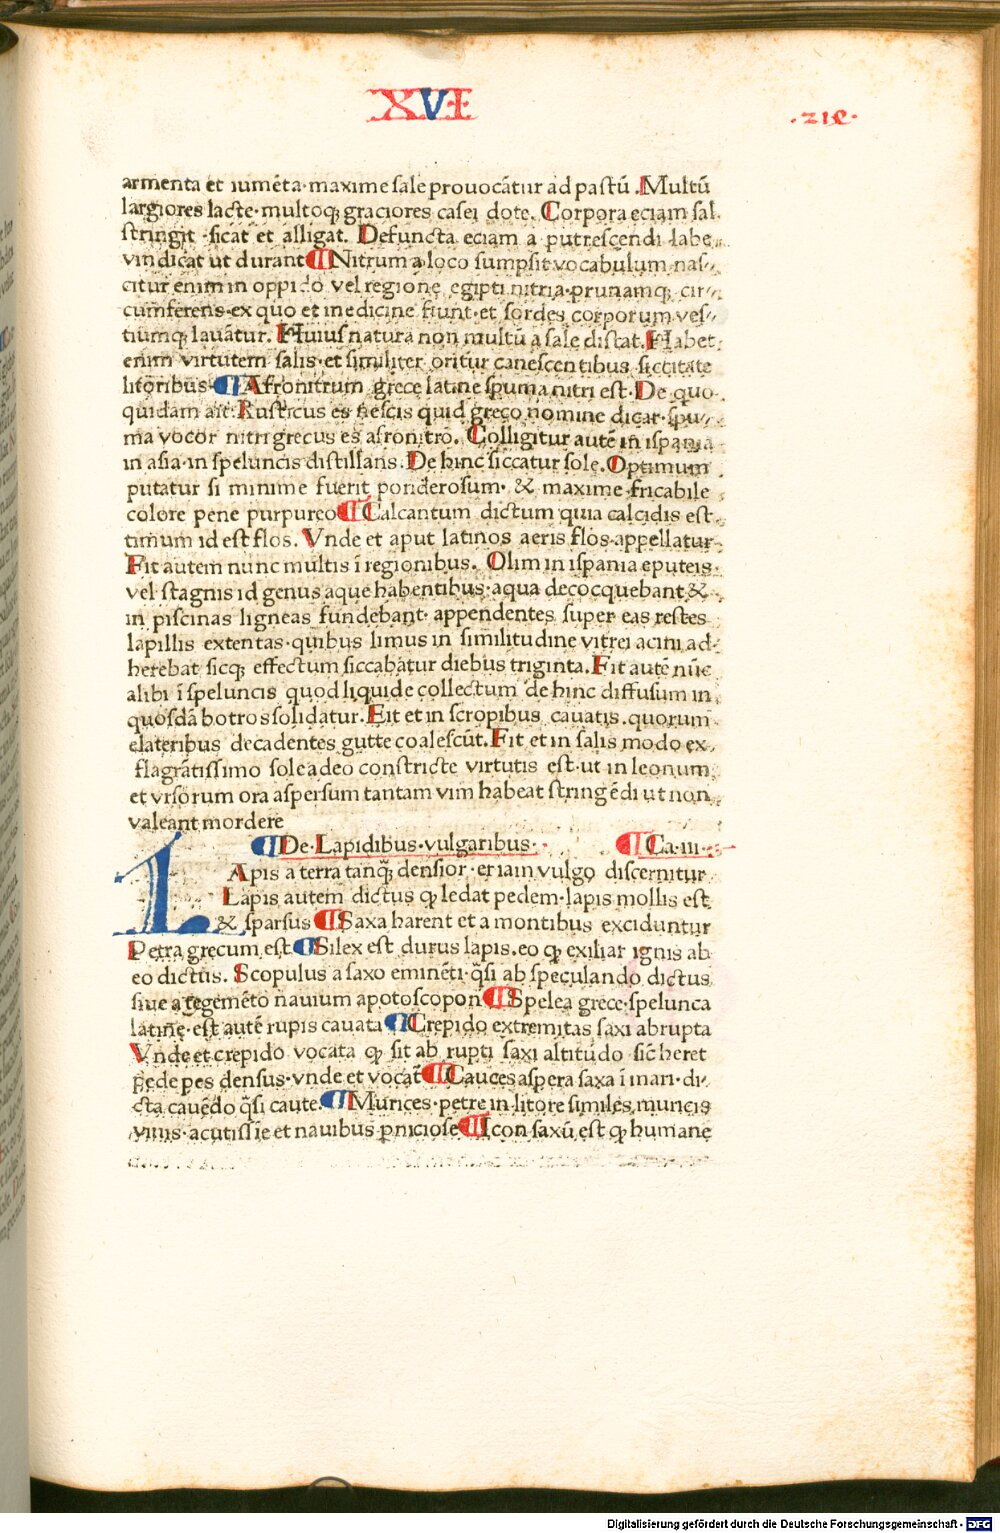 XVI
.212.
armenta et iumēta·maxime sale prouocātur ad pastū .Multū
largiores lacte·multoqꝫ graciores casei dote. Corpora eciam sal
stringit ·sicat et alligat. Defuncta eciam a putrescendi labe
vindicat ut durant ¶Nitrum a loco sumpsit vocabulum nas⸗
citur enim in oppido vel regione egipti nitria·prunamqꝫ cir⸗
cumferens·ex quo et medicine fiunt·et sordes corporum ves⸗
tiumqꝫ lauātur. Huius natura non multū a sale distat. Habet
enim virtutem salis·et similiter oritur canescentibus siccitate
litoribus ¶Afronitrum grece latine spuma nitri est·De quo
quidam ait:Rusticus es nescis quid greco nomine dicar·spu⸗
ma vocor nitri grecus es afronitrō. Colligitur autē in ispania
in asia·in speluncis distillans.De hinc siccatur sole.Optimum
putatur si minime fuerit ponderosum· & maxime fricabile
colore pene purpureo ¶Calcantum dictum quia calcidis est
timum id est flos. Vnde et aput latinos aeris flos·appellatur
Fit autem nunc multis ī regionibus. Olim in ispania e puteis
vel stagnis id genus aque habentibus·aqua decocquebant &
in piscinas ligneas fundebant· appendentes super eas restes
lapillis extentas·quibus limus in similitudine vitrei acini ad
herebat sicqꝫ effectum siccabatur diebus triginta.Fit autē nūc
alibi ī speluncis quod liquide collectum de hinc diffusum in
quosdā botros solidatur.Fit et in scropibus cauatis.quorum
elateribus decadentes gutte coalescūt.Fit et in salis modo ex⸗
flagrātissimo sole adeo constricte virtutis est·ut in leonum
et vrsorum ora aspersum tantam vim habeat stringēdi ut non
valeant mordere
¶De·Lapidibus·vulgaribus· ¶Ca·iii·
LApis a terra tanqꝫ densior·et iam vulgo discernitur
Lapis autem dictus ꝙ ledat pedem·lapis mollis est
& sparsus ¶Saxa harent et a montibus exciduntur
Petra grecum est ¶Silex est durus lapis.eo ꝙ exiliar ignis ab
eo dictus. Scopulus a saxo eminēti·q̄si ab speculando dictus
siue a tegemēto nauium apotoscopon ¶Spelea grece·spelunca
latine·est autē rupis cauata ¶Crepido extremitas saxi abrupta
Vnde et crepido vocata ꝙ sit ab rupti saxi altitudo sic̄ heret
pede pes densus·vnde et vocat̄ ¶Cauces aspera saxa ī mari·di⸗
cta cauēdo q̄si caute. ¶Murices·petre in litore similes muricis
viuis·acutissīe et nauibus ꝑniciose ¶Icon saxū est ꝙ humane
Digitalisierung gefördert durch die Deutsche Forschungsgemeinschaft - DFG